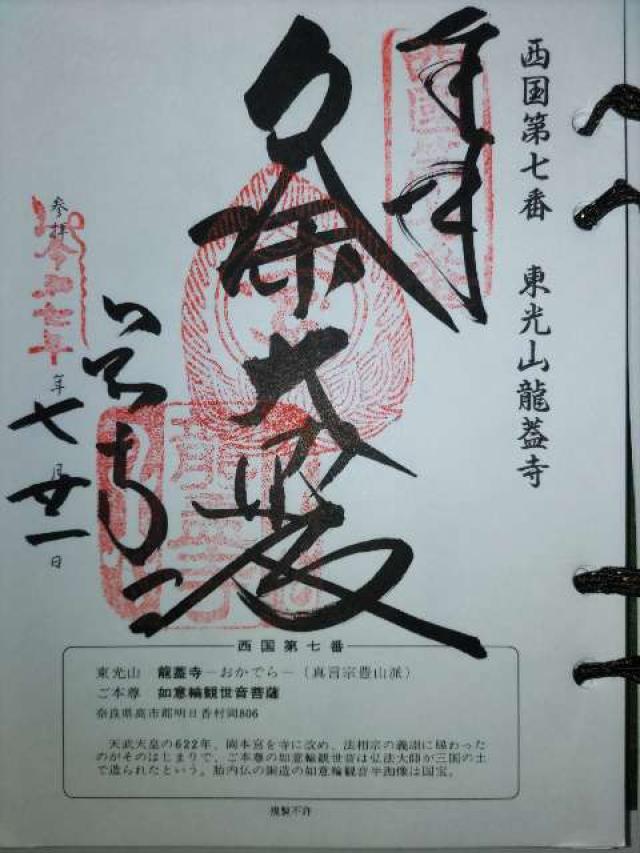 西国第七番 東光山龍蓋寺
奉拝
参拝
令和七年
年
七月廿一日
西国第七番
東光山 龍蓋寺―おかでら―(真言宗豊山派)
ご本尊 如意輪観世音菩薩
奈良県高市郡明日香村岡806
天武天皇の622年、岡本宮を寺に改め、法相宗の義淵に賜わった
のがそのはじまりで、ご本尊の如意輪観世音は弘法大師が三国の土
で造られたという。胎内仏の銅造の如意輪観音半跏像は国宝。
複製不許